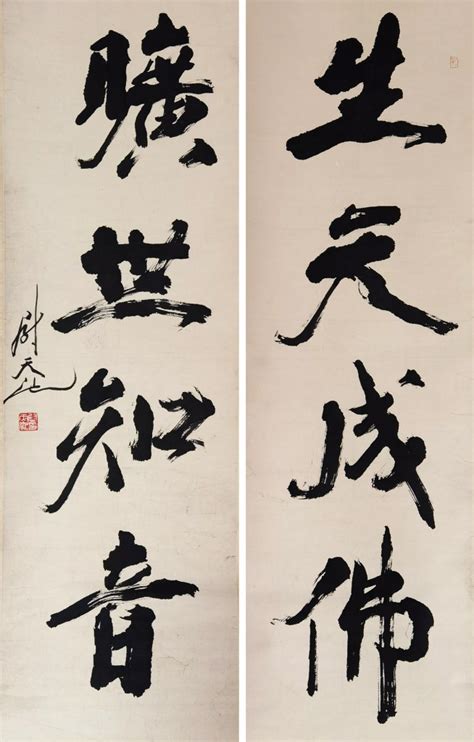 生天成佛
曠世知音
尉天池